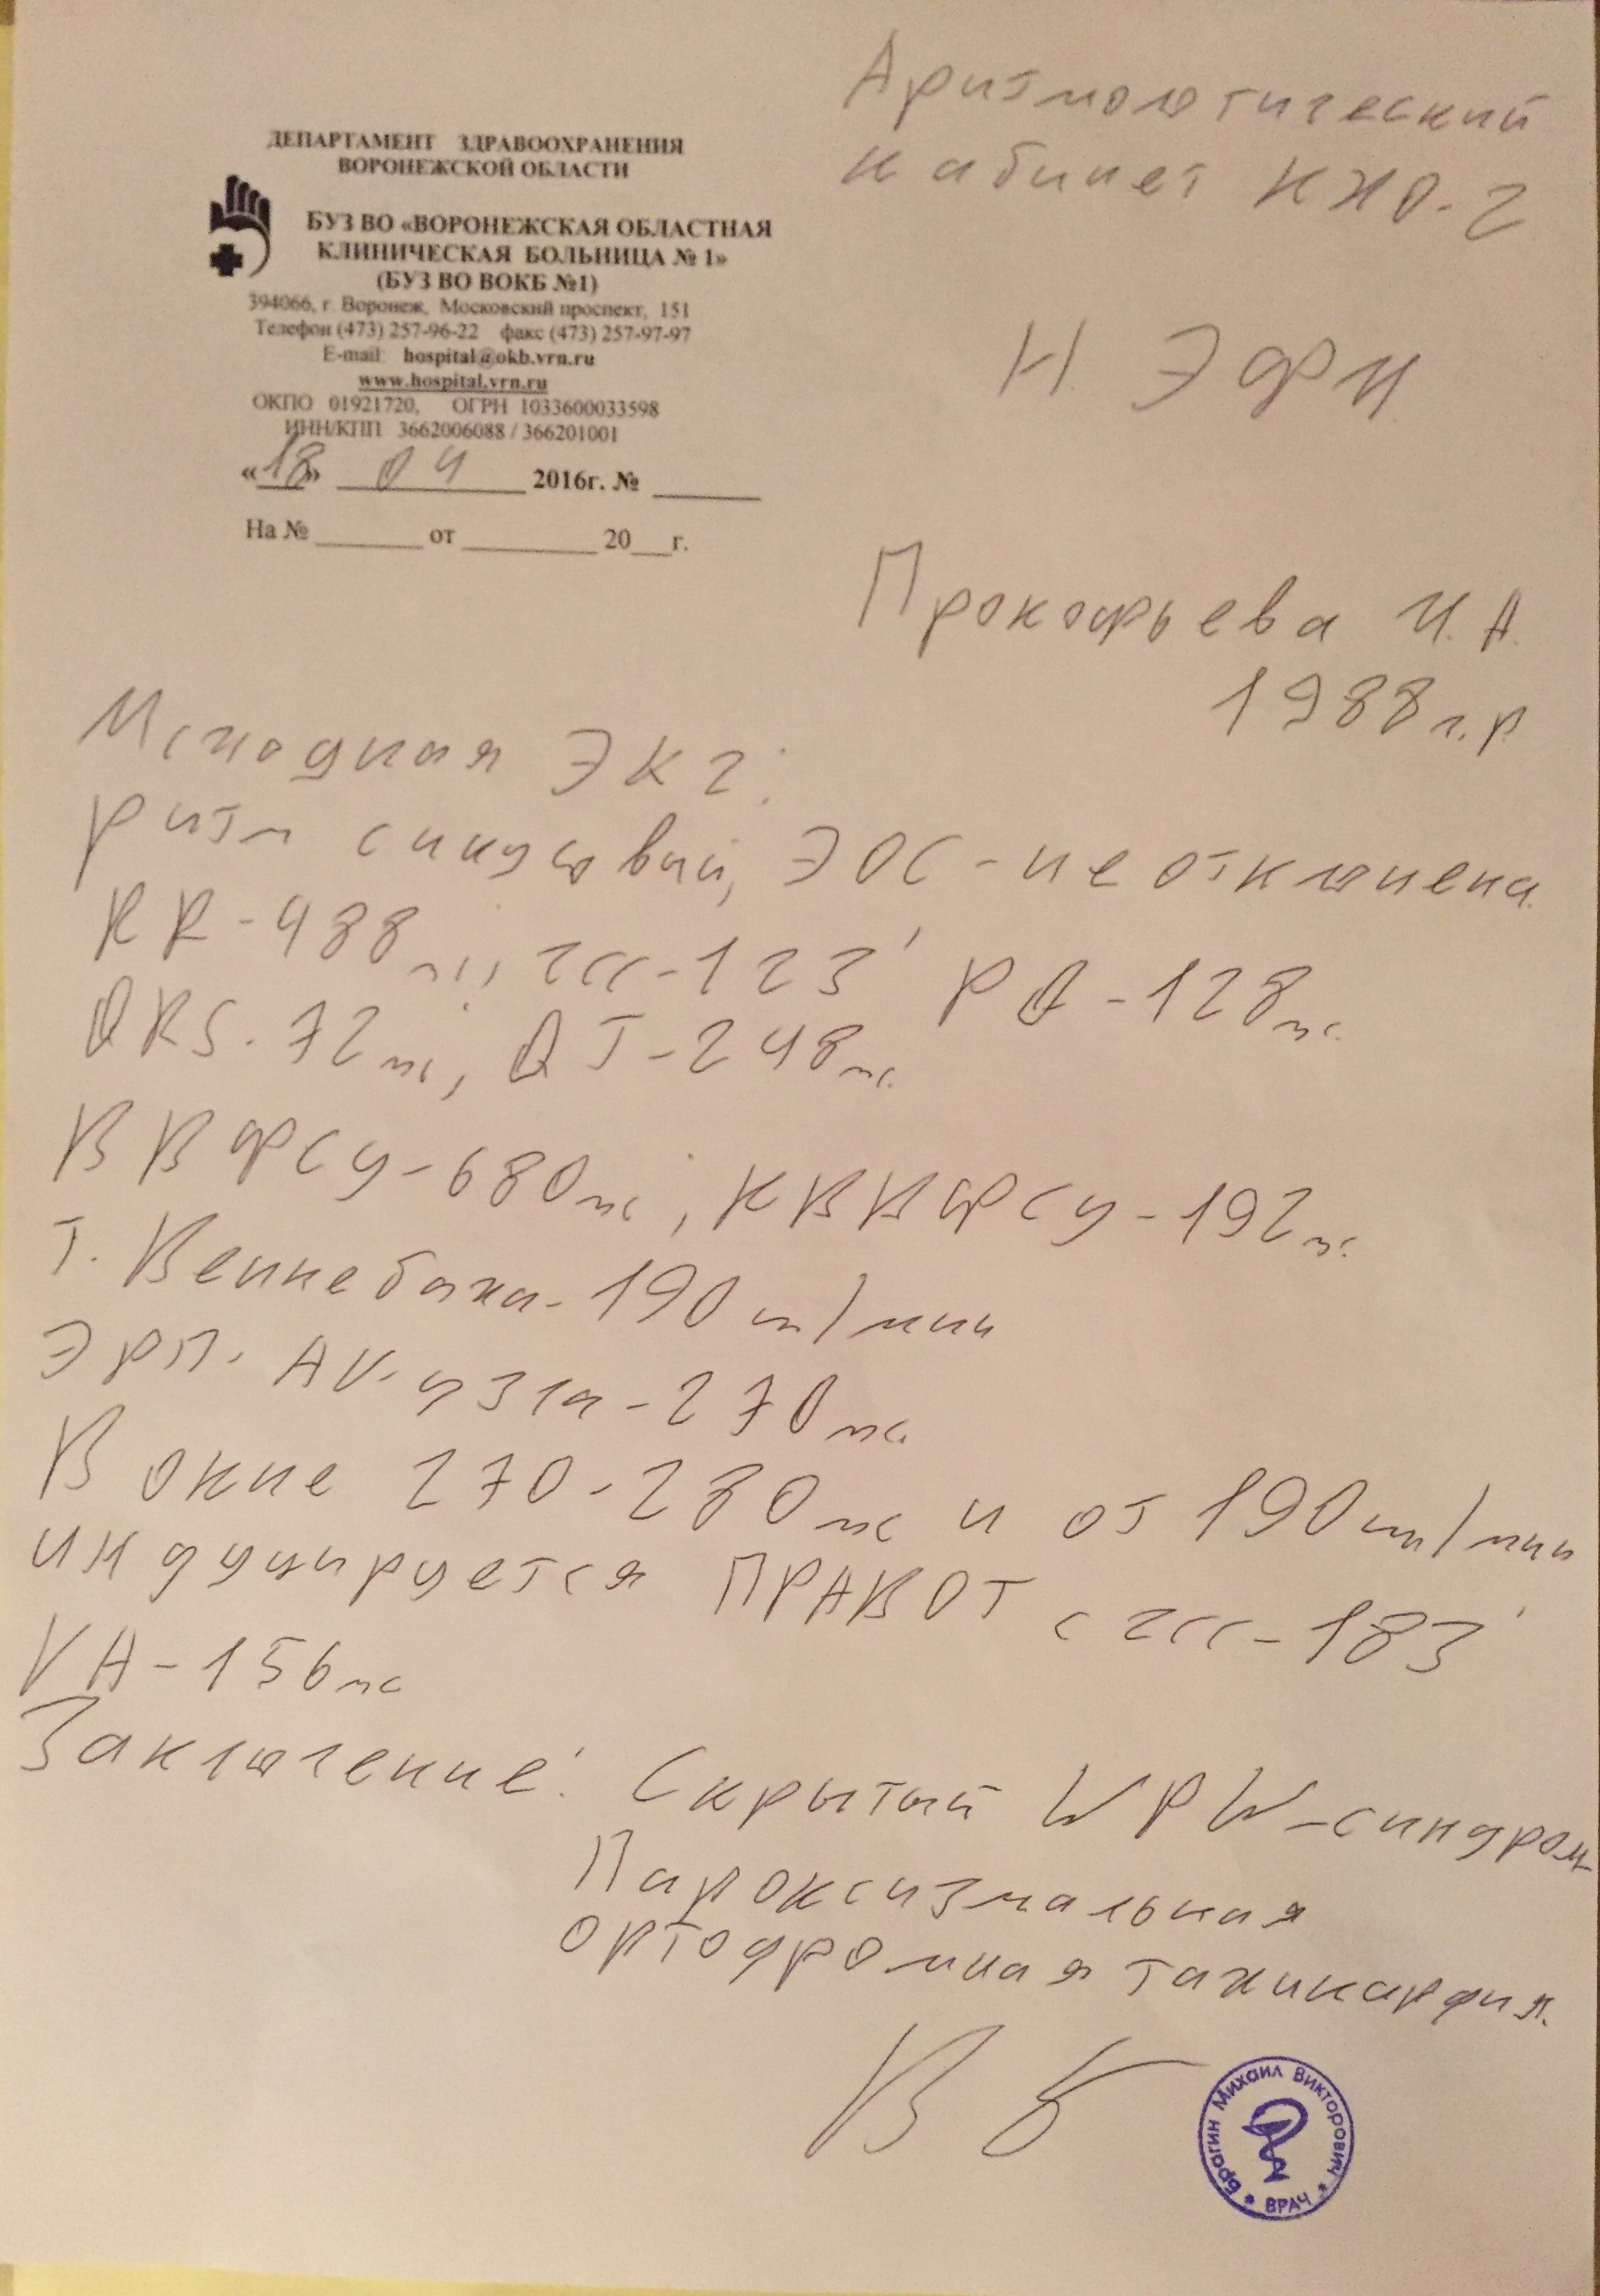 Аритмологический
кабинет КХО-2
ДЕПАРТАМЕНТ ЗДРАВООХРАНЕНИЯ
ВОРОНЕЖСКОЙ ОБЛАСТИ
БУЗ ВО «ВОРОНЕЖСКАЯ ОБЛАСТНАЯ
КЛИНИЧЕСКАЯ БОЛЬНИЦА № 1»
(БУЗ ВО ВОКБ №1)
394066, г. Воронеж, Московский проспект, 151
Телефон (473) 257-96-22 факс (473) 257-97-97
E-mail: hospital@okb.vrn.ru
www.hospital.vrn.ru
ОКПО 01921720, ОГРН 1033600033598
ИНН/КПП 3662006088 / 366201001
«18» 04 2016г. №
На № от 20 г.
Н ЭФИ
Прокофьева И.А.
1988 г.р.
Исходная ЭКГ:
ритм синусовый, ЭОС - не отклонена.
RR-488мс, чсс-123' PQ-128мс.
QRS-72мс, QT-248мс.
ВВФСУ-680мс, КВВФСУ-192мс.
т. Веннебаха-190 имп/мин
ЭРП- AV-узла-270мс.
В окне 270-280мс и от 190имп/мин
индуцируется ПРАВОТ с чсс-183'
VA-156мс
Заключение: Скрытый WPW-синдром.
Пароксизмальная
ортодромная тахикардия.
Брагин Михаил Викторович * ВРАЧ *